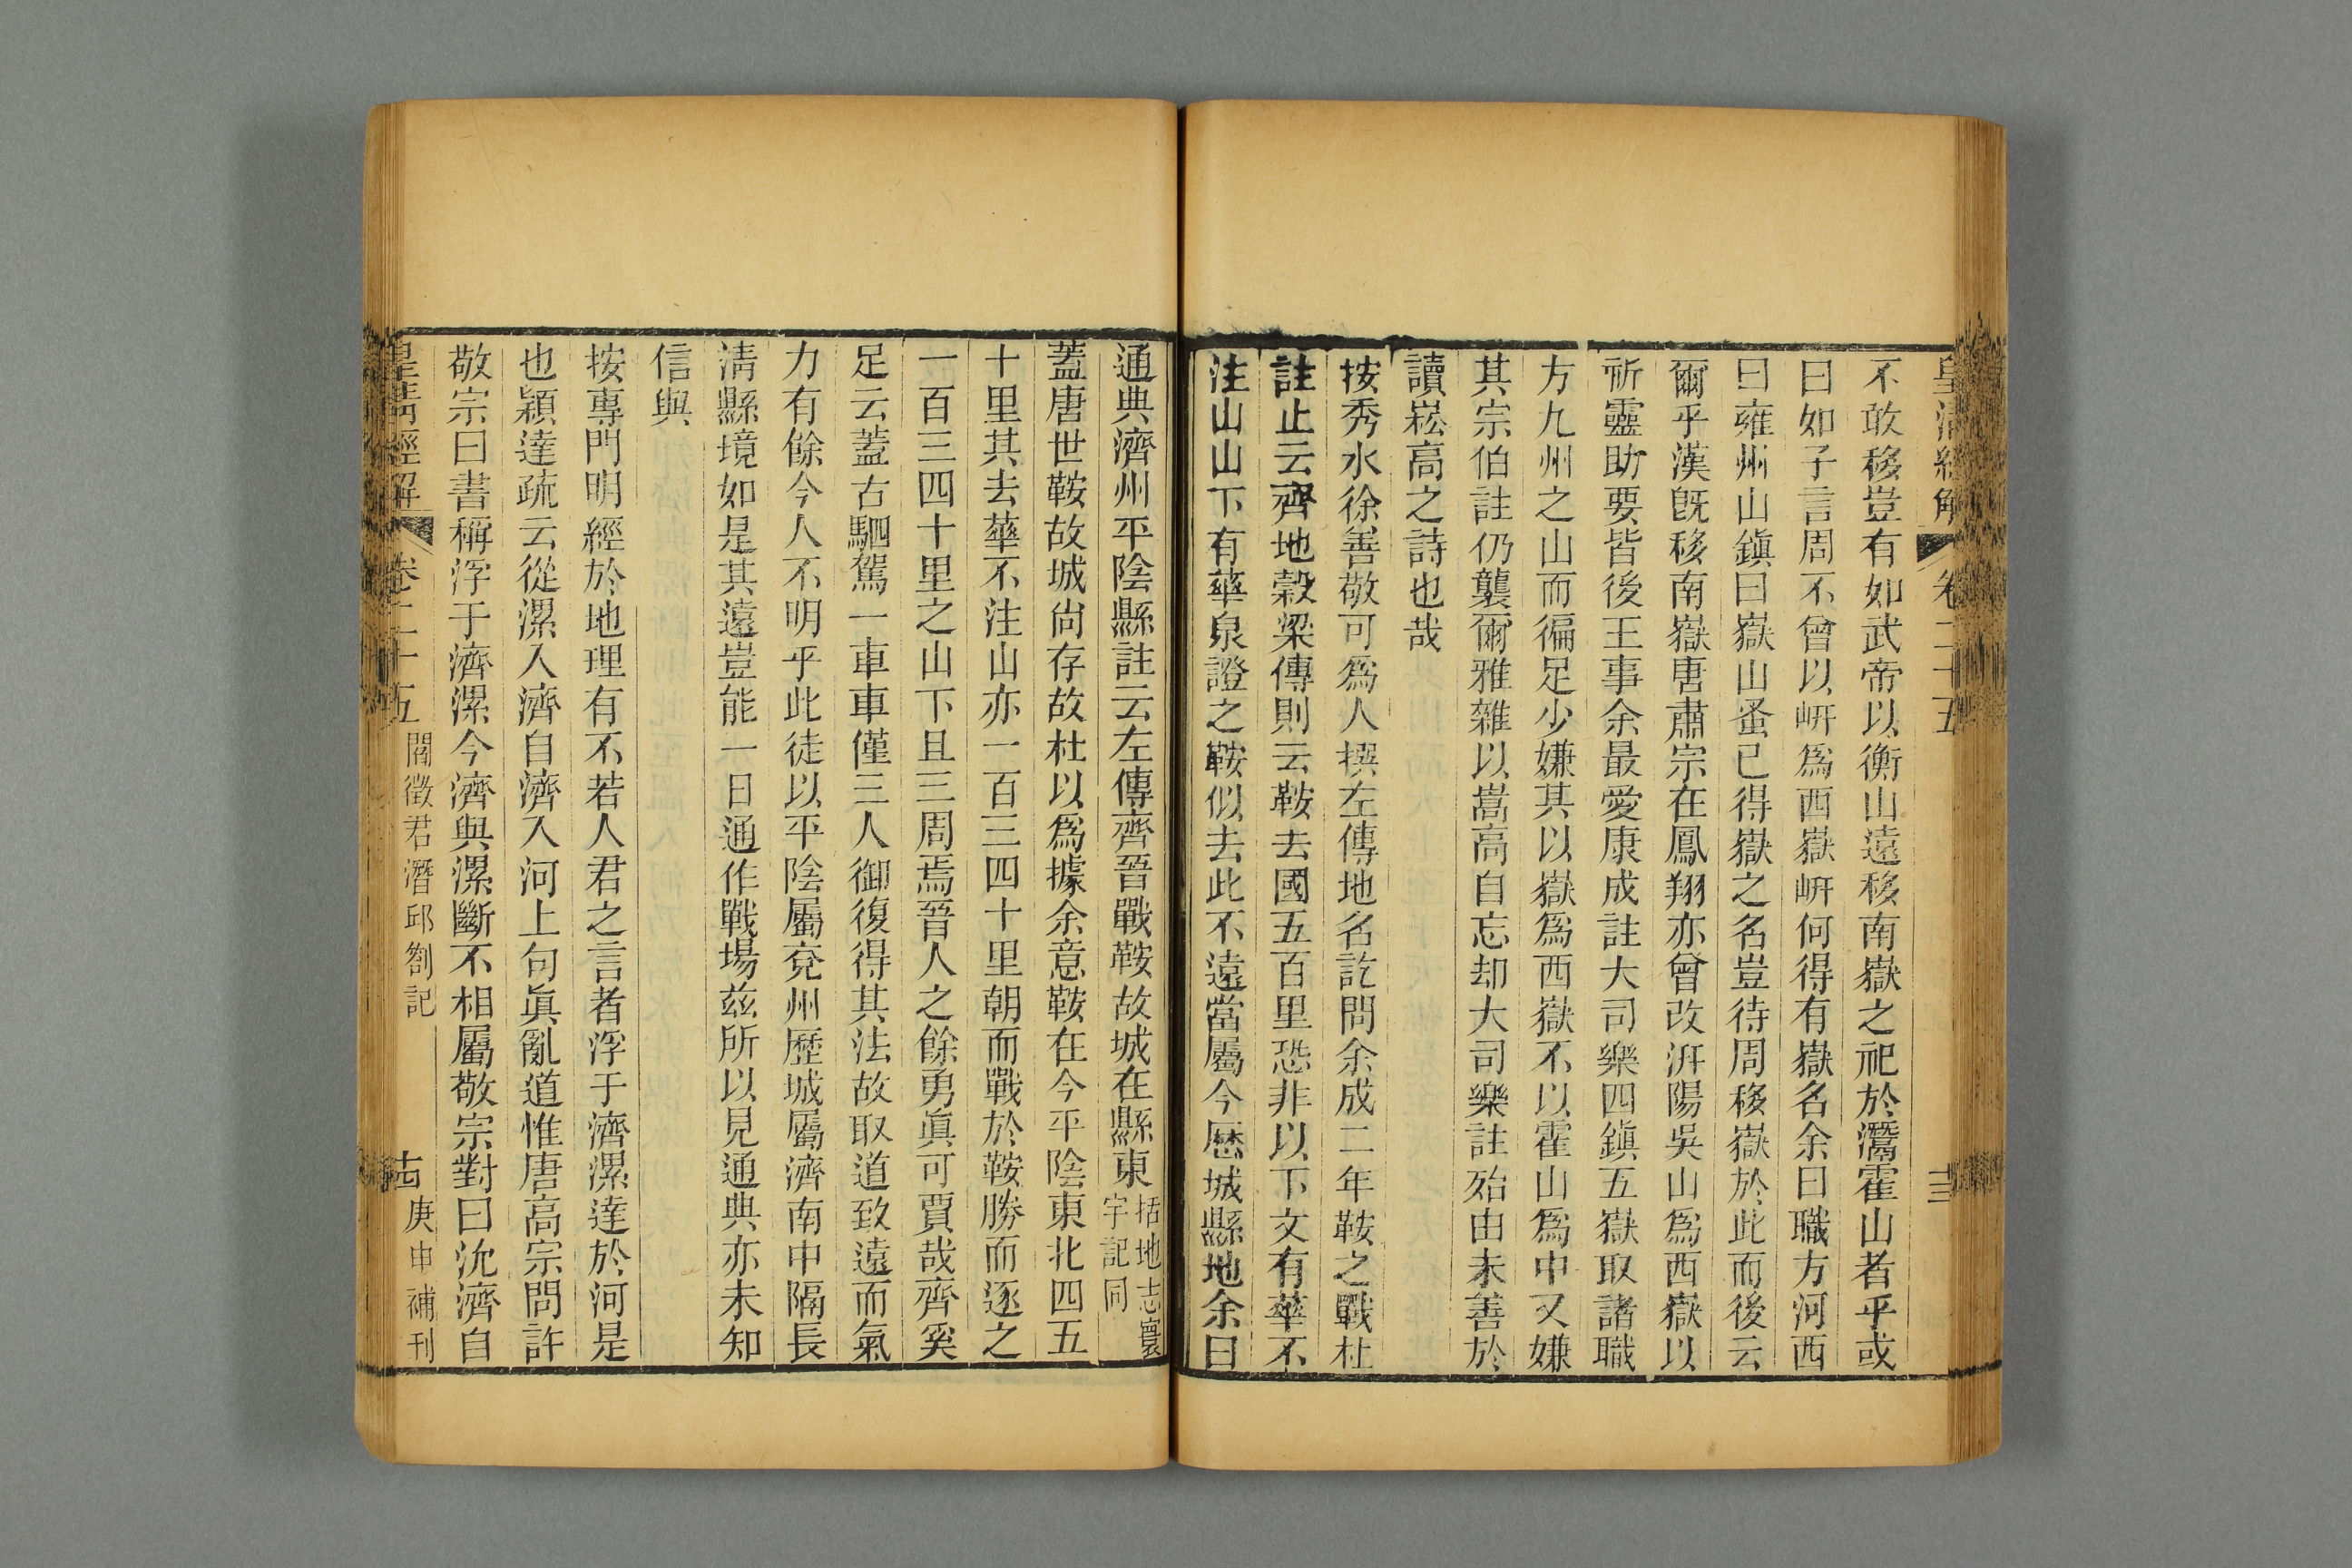 皇清經解
卷二十五
十三
不敢移豈有如武帝以衡山遠移南嶽之祀於灊霍山者乎或
曰如子言周不曾以岍爲西嶽岍何得有嶽名余曰職方河西
曰雍州山鎭曰嶽山蚤已得嶽之名豈待周移嶽於此而後云
爾乎漢旣移南嶽唐肅宗在鳳翔亦曾改汧陽吳山爲西嶽以
祈靈助要皆後王事余最愛康成註大司樂四鎭五嶽取諸職
方九州之山而徧足少嫌其以嶽爲西嶽不以霍山爲中又嫌
其宗伯註仍襲爾雅雜以嵩高自忘却大司樂註殆由未善於
讀崧高之詩也哉
按秀水徐善敬可爲人撰左傳地名訖問余成二年鞍之戰杜
註止云齊地穀梁傳則云鞍去國五百里恐非以下文有華不
注山山下有華泉證之鞍似去此不遠當屬今歷城縣地余曰
通典濟州平陰縣註云左傳齊晉戰鞍故城在縣東括地志寰
宇記同
蓋唐世鞍故城尙存故杜以爲據余意鞍在今平陰東北四五
十里其去華不注山亦一百三四十里朝而戰於鞍勝而逐之
一百三四十里之山下且三周焉晉人之餘勇眞可賈哉齊奚
足云蓋古駟駕一車車僅三人御復得其法故取道致遠而氣
力有餘今人不明乎此徒以平陰屬兗州歷城屬濟南中隔長
淸縣境如是其遠豈能一日通作戰場茲所以見通典亦未知
信與
按專門明經於地理有不若人君之言者浮于濟漯達於河是
也穎達疏云從漯入濟自濟入河上句眞亂道惟唐高宗問許
敬宗曰書稱浮于濟漯今濟與漯斷不相屬敬宗對曰沇濟自
皇淸經解
卷二十五
閻徵君潛邱劄記
十四
庚申補刊